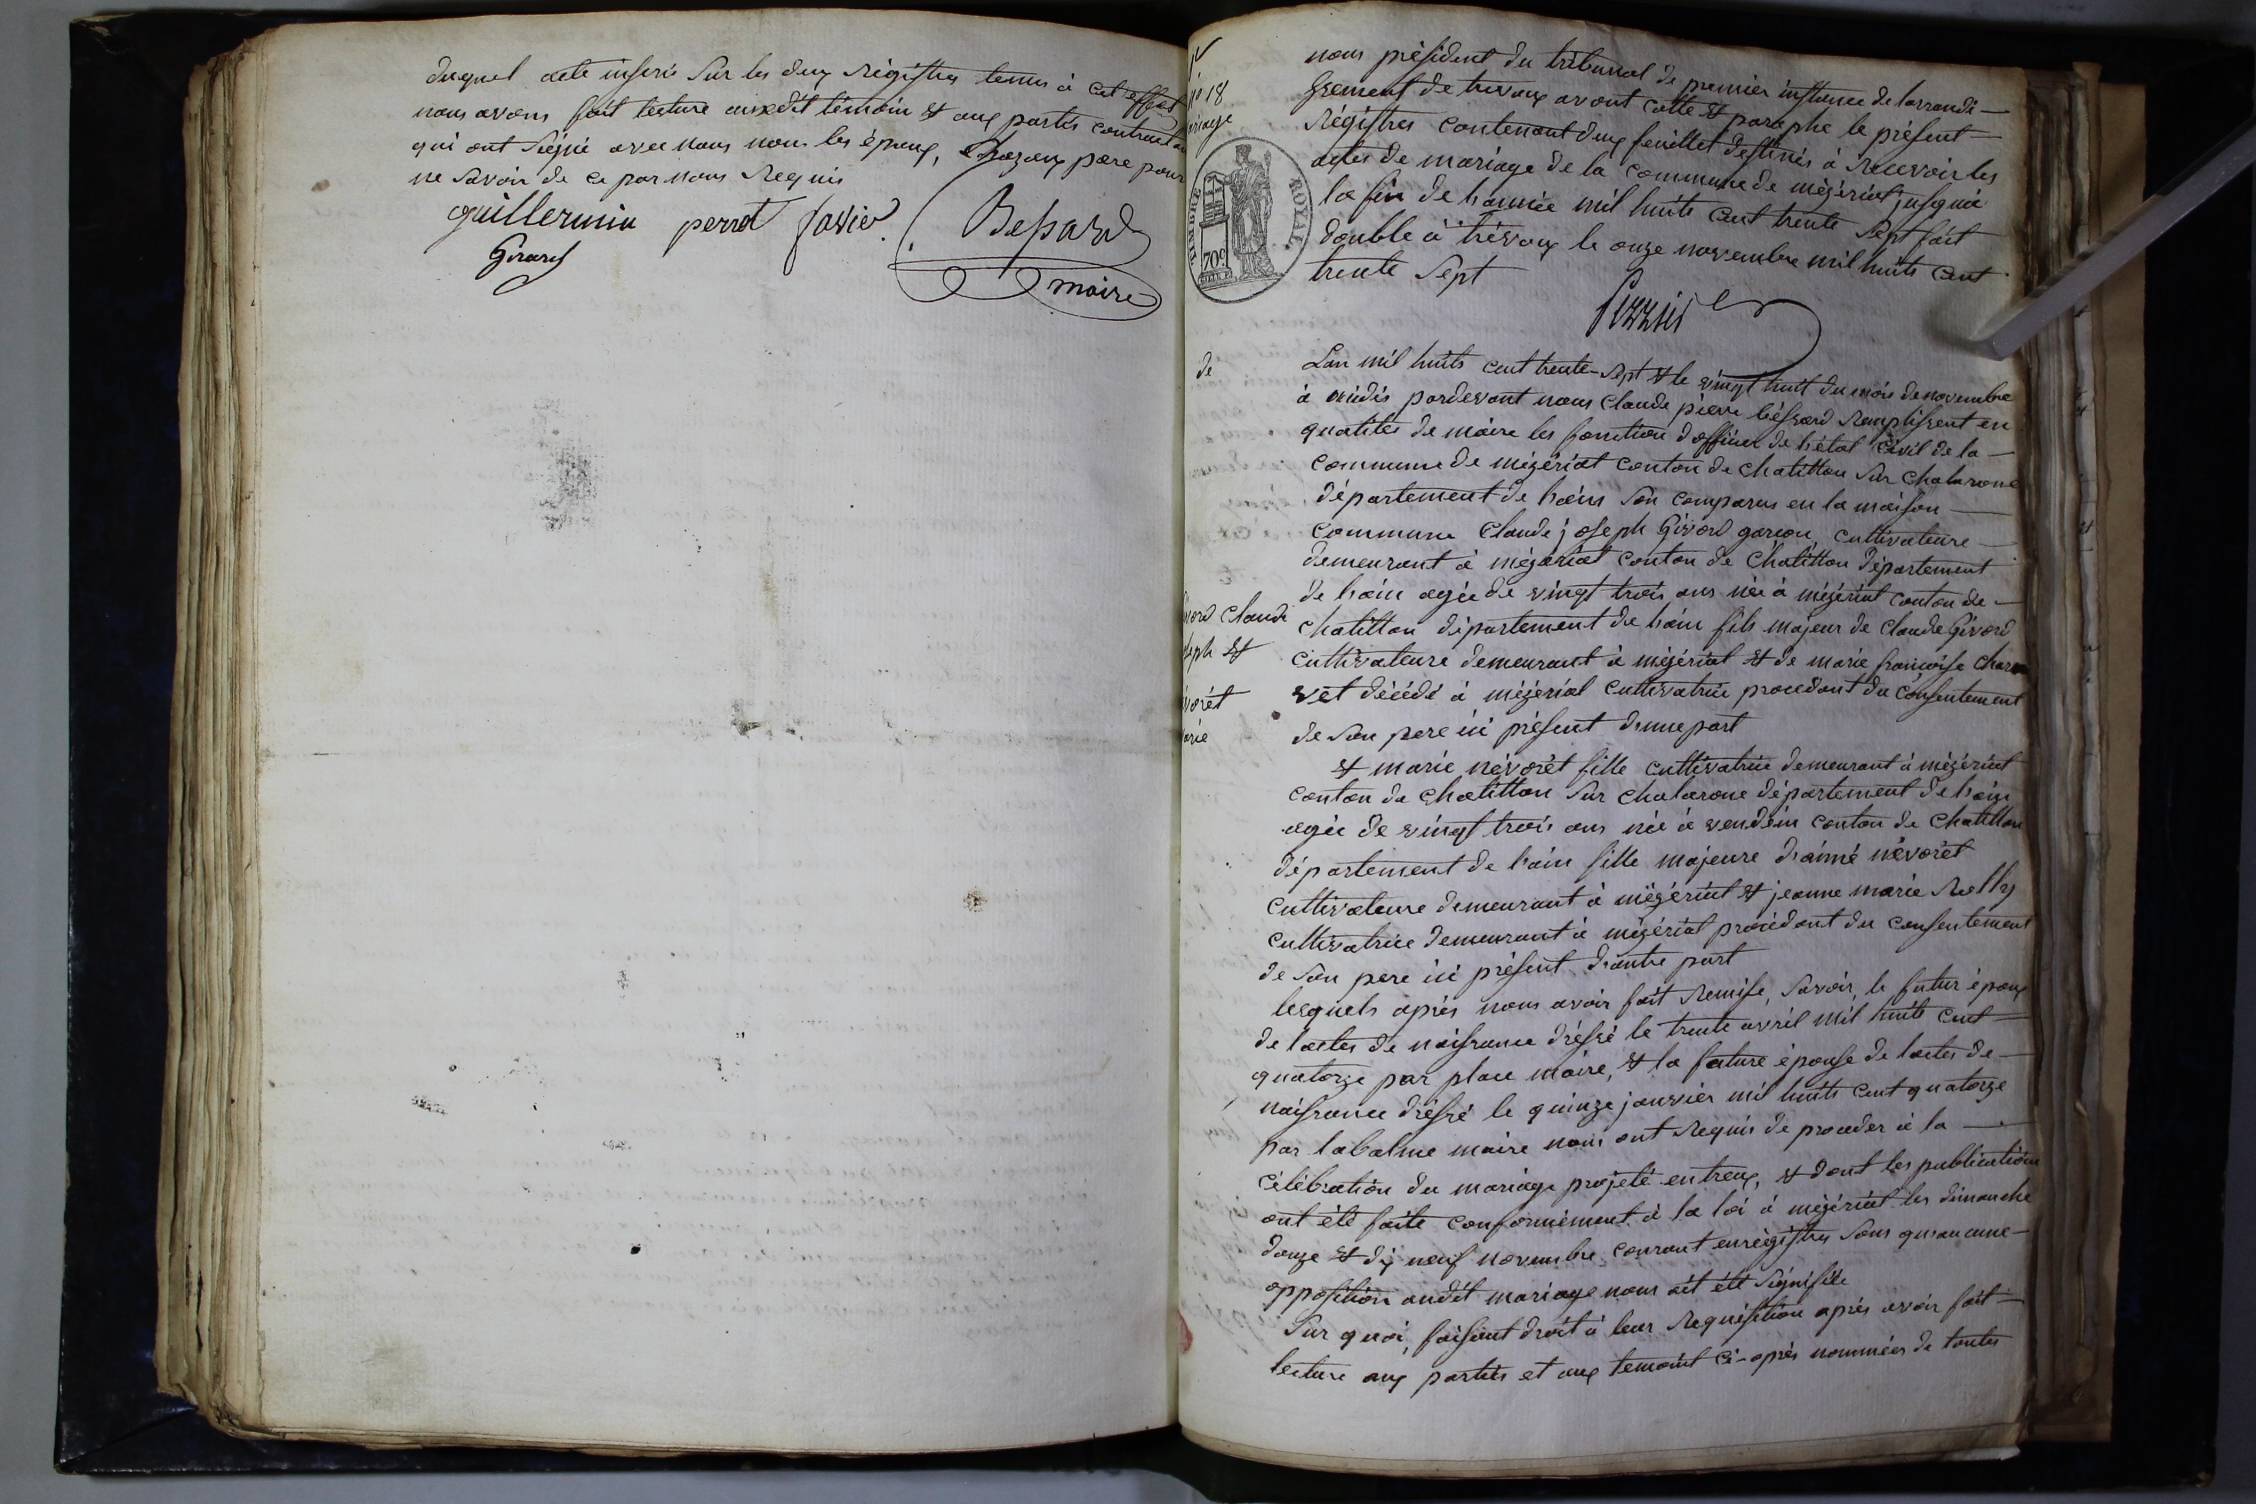 duquel acte inseré sur les deux régistres tenus à cet effet
nous avons fait lecture auxedit témoin et aux partis contractan
qui ont signé avec nous non les époux, pere pour
ne savoir de ce par nous requis
guillermin perrot favier Bessard
Girard
maire
No 18
riage
TIMBRE ROYAL
70c
nous président du tribunal de premier instance de larrondi-
ssement de trevoux avont cotté et paraphé le présent
régistres contenant deux feuillet destinés à recevoir les
actes de mariage de la commune de mézériat jusqu'à
la fin de l'année mil huits cent trente sept fait
double à trévoux le onze novembre mil huits cent
trente sept
de
Lan mil huits cent trente-sept et le vingt huit du mois de novembre
à midis pardevant nous Claude pierre béssard remplissent en
qualités de maire les fonction d'officier de l'état civil de la -
commune de mézériat conton de chatillon sur chalarone
département de l'ain son comparus en la maison
commune Claude joseph Givord garcon, cultivateure
demeurant à mézériat conton de Chatillon département
de l'ain agée de vingt trois ans née à mézériat conton de -
chatillon département de l'ain fils majeur de Claude Givord
cultivateure demeurant à mézériat et de marie françoise char
vet décédé à mézériat cultivatrice procedant du consentement
de son pere ici présent d'une part
vord Claude
seph et
névorét
marie
et marie névorét fille cultivatrice demeurant à mézériat
conton de chatillon sur chalarone département de l'ain
agée de vingt trois ans née à vendéin conton de chatillon
département de l'ain fille majeure d'aimé névorét
cultivateure demeurant à mézériat et jeanne marie
cultivatrice demeurant à mézériat procédant du consentement
de son pere ici présent d'autre part
lesquels après nous avoir fait remise, savoir, le futur époux
de l'actes de naissance dréssé le trente avril mil huits cent
quatorze par place maire, et la future épouse de l'actes de -
naissance dréssé le quinze janvier mil huits cent quatorze
par labalme maire nous ont requis de proceder à la
célébration du mariage projeté entreux, et dont les publications
ont été faite conformément à la loi à mézériat les dimanche
douze et dix neuf novembre courant enregistres sans qu'aucune -
opposition audit mariage nous ait été signifiée
Sur quoi, faisant droit à leur requisition après avoir fait
lecture aux partiés et aux temoint ci-après nommées de toutes